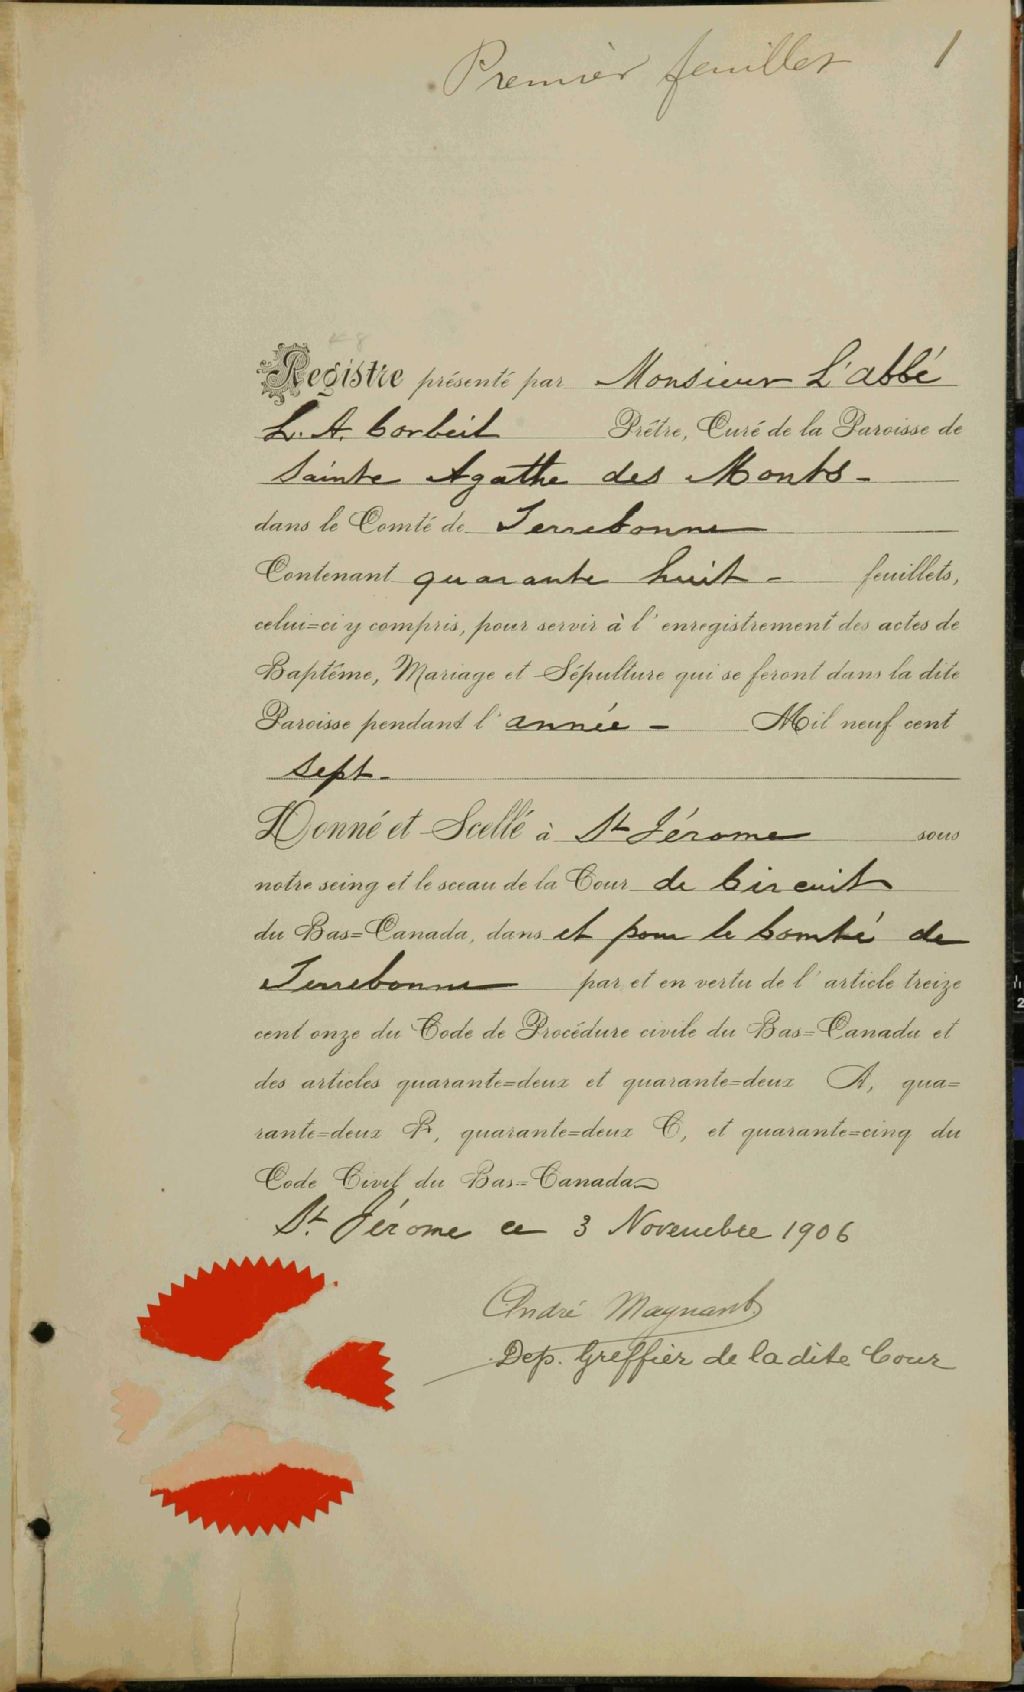 Premier feuillet 1
Registre présenté par Monsieur L'abbé
L. A. Corbeil Prêtre, Curé de la Paroisse de
Sainte Agathe des Monts -
dans le Comté de Terrebonne
Contenant quarante huit - feuillets,
celui=ci y compris, pour servir à l'enregistrement des actes de
Baptême, Mariage et Sépulture qui se feront dans la dite
Paroisse pendant l'année - Mil neuf cent
sept -
Donné et Scellé à St Jérome sous
notre seing et le sceau de la Cour de Circuit
du Bas=Canada, dans et pour le Comté de
Terrebonne par et en vertu de l'article treize
cent onze du Code de Procédure civile du Bas=Canada et
des articles quarante=deux et quarante=deux A, qua=
rante=deux B, quarante=deux C, et quarante=cinq du
Code Civil du Bas=Canada
St. Jérome ce 3 Novembre 1906
André Maynard
Dep. Greffier de la dite Cour